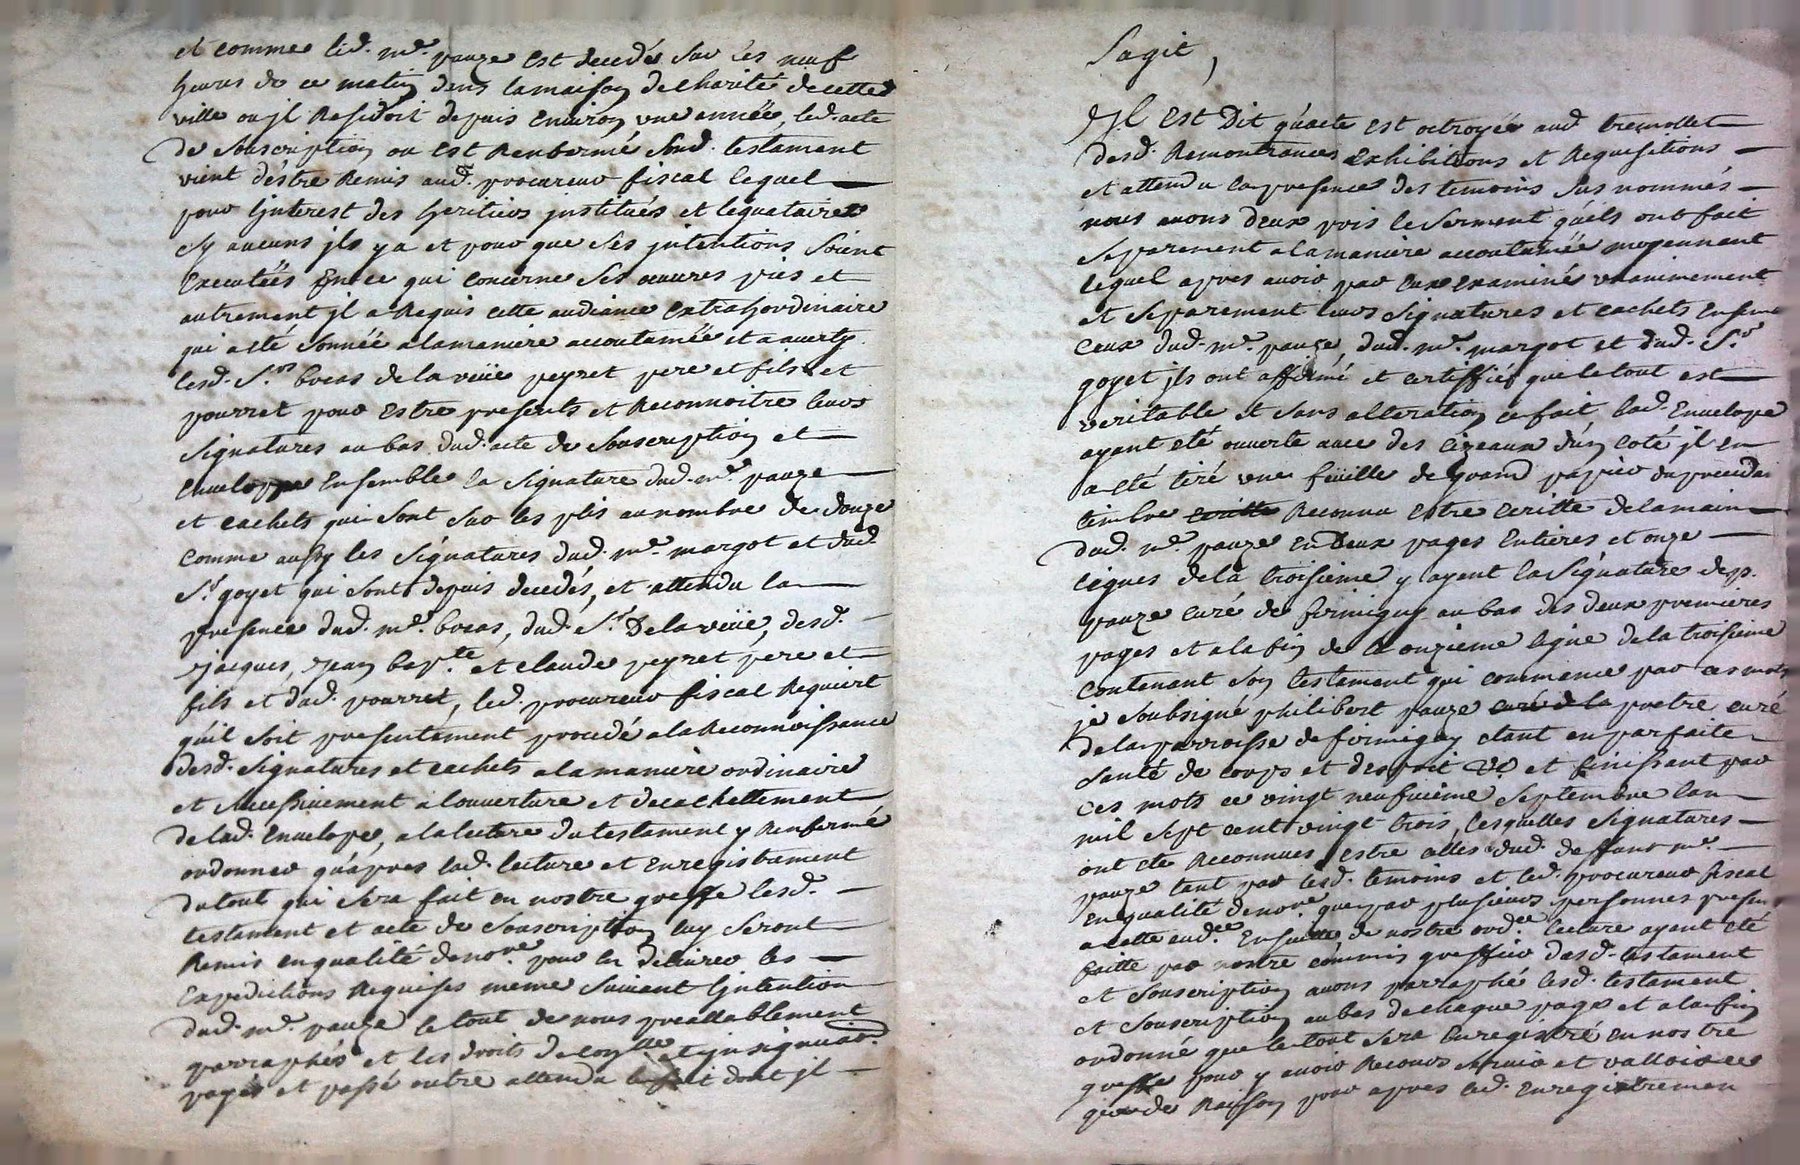 et comme led. me. pauze est decedé sur les neuf
heures de ce matin dens la maison de charité de cette
ville ou jl Residoit depuis environ une année, led. acte
de souscription ou est Renfermé sond. testament
vient d'éstre Remis aud. procureur fiscal lequel
pour linterest des heritiers jnstitués et léquataires
sy aucuns jls y a et pour que ses jntentions soient
Executées En ce qui concerne ses œuvres pies et
autrement jl a Requis cette audiance extrahordinaire
qui a été sonnéé a la maniere accoutumée et a averty
lesd. Srs. bocas de la veüe peyret pere et fils et
pourret pour estre presents et Reconnoitre leurs
signatures au bas dud. acte de souscription et
enveloppe ensemble la signature dud. me. pauze
et cachets qui sont sur les plis au nombre de douze
comme aussy les signatures dud. me. margot et dud.
Sr. goyet qui sont depuis decedés, et attendu la
presence dud. me. bocas, dud. Sr. De la veüe, desd.
jacques, jean bapte. et claude peyret pere et
fils et dud. pourret, led. procureur fiscal Requiert
qu'il soit presentement procedé a la Reconnoissance
desd. signatures et cachets a la maniere ordinaire
et successivement a l'ouverture et decachettement
de lad. envelope, a la lecture du testament y Renfermé
ordonner qu'apres lad. lecture et enregistrement
du tout qui sera fait en nostre greffe lesd.
testament et acte de souscription luy seront
Remis en qualité de nore. pour en délivrer les
expeditions Requises meme suivant lintention
dud. me. pauze le tout de nous preallablement
parraphés et les droits de et jnsignuaon.
payés et passé outre attendu le fait dont jl
sagit,
Jl Est Dit qu'acte est octroyée aud tremollet
desd. Remontrances exhibitions et Requisitions
et attendu la presence des temoins sus nommés
nous avons deux pris le serment qu'ils ont fait
separement a la maniere accoutumée moyennant
lequel apres avoir par eux examiné unanimement
et separement leurs signatures et cachets ensemble
ceux dud. me. pauze, dud. me. margot et dud. Sr.
goyet jls ont affirmé et certiffiés que le tout est
veritable et sans alteration ce fait lad. envelope
ayant eté ouverte avec des cizeaux d'un coté jl en
a eté tiré une feüille de grand papier du precedant
timbre ecritte Reconnu estre ecritte de la main
dud. me. pauze en deux pages entieres et onze
lignes de la troisieme y ayent la signature de p.
pauze curé de firmigny au bas des deux premieres
pages et a la fin de la onzieme ligne de la troisieme
contenant son testament qui commence par ces mots
je soubsigné philibert pauze curé de la pretre curé
de la parroisse de firmigny etant en parfaite
santé de corps et desprit &c et finissant par
ces mots ce vingt neufvieme septembre lan
mil sept cent vingt trois, lesquelles signatures
ont ete Reconnues estre celles dud. deffunt me.
pauze tant par lesd. temoins et led. procureur fiscal
en qualité de nore. que par plusieurs personnes presen.
a cette audce. Ensuitte de nostre ordce. lecture ayent eté
faitte par nostre commis greffier desd. testament
et souscription avons parraphé lesd. testament
et souscription au bas de chaque page et a la fin
ordonné que le tout sera enregistré en nostre
greffe pour y avoir Recours servir et valloir ce
que de Raison pour apres led. enregistremen